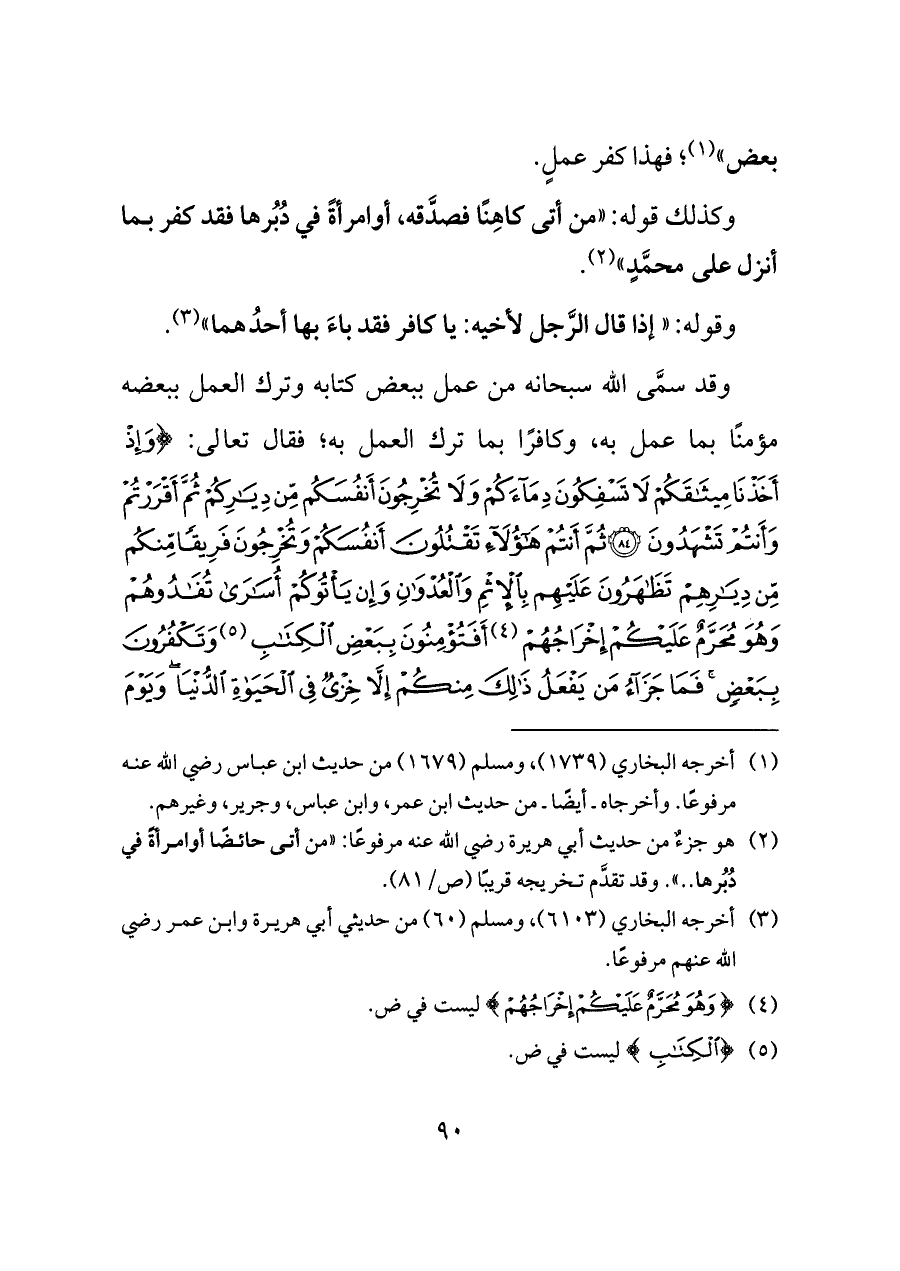 بعض»(١)؛ فهذا كفر عملٍ.
وكذلك قوله: «من أتى كاهِنًا فصدَّقه، أوامرأةً في دُبُرها فقد كفر بما
أنزل على محمَّدٍ»(٢).
وقوله: « إذا قال الرَّجل لأخيه: يا كافر فقد باءَ بها أحدُهما»(٣).
وقد سمَّى الله سبحانه من عمل ببعض كتابه وترك العمل ببعضه
مؤمنًا بما عمل به، وكافرًا بما ترك العمل به؛ فقال تعالى: ﴿وَإِذْ
أَخَذْنَا مِيثَٰقَكُمْ لَا تَسْفِكُونَ دِمَآءَكُمْ وَلَا تُخْرِجُونَ أَنفُسَكُم مِّن دِيَٰرِكُمْ ثُمَّ أَقْرَرْتُمْ
وَأَنتُمْ تَشْهَدُونَ ۝٨٤ ثُمَّ أَنتُمْ هَٰٓؤُلَآءِ تَقْتُلُونَ أَنفُسَكُمْ وَتُخْرِجُونَ فَرِيقًا مِّنكُم
مِّن دِيَٰرِهِمْ تَظَٰهَرُونَ عَلَيْهِم بِٱلْإِثْمِ وَٱلْعُدْوَٰنِ وَإِن يَأْتُوكُمْ أُسَٰرَىٰ تُفَٰدُوهُمْ
وَهُوَ مُحَرَّمٌ عَلَيْكُمْ إِخْرَاجُهُمْ (٤) أَفَتُؤْمِنُونَ بِبَعْضِ ٱلْكِتَٰبِ (٥) وَتَكْفُرُونَ
بِبَعْضٍ ۚ فَمَا جَزَآءُ مَن يَفْعَلُ ذَٰلِكَ مِنكُمْ إِلَّا خِزْىٌ فِى ٱلْحَيَوٰةِ ٱلدُّنْيَا ۖ وَيَوْمَ
(١) أخرجه البخاري (١٧٣٩)، ومسلم (١٦٧٩) من حديث ابن عباس رضي الله عنه
مرفوعًا. وأخرجاه ـ أيضًا ـ من حديث ابن عمر، وابن عباس، وجرير، وغيرهم.
(٢) هو جزءٌ من حديث أبي هريرة رضي الله عنه مرفوعًا: «من أتى حائضًا أوامرأةً في
دُبُرها..». وقد تقدَّم تخريجه قريبًا (ص/ ٨١).
(٣) أخرجه البخاري (٦١٠٣)، ومسلم (٦٠) من حديثي أبي هريرة وابن عمر رضي
الله عنهم مرفوعًا.
(٤) ﴿ وَهُوَ مُحَرَّمٌ عَلَيْكُمْ إِخْرَاجُهُمْ ﴾ ليست في ض.
(٥) ﴿ٱلْكِتَٰبِ ﴾ ليست في ض.
٩٠